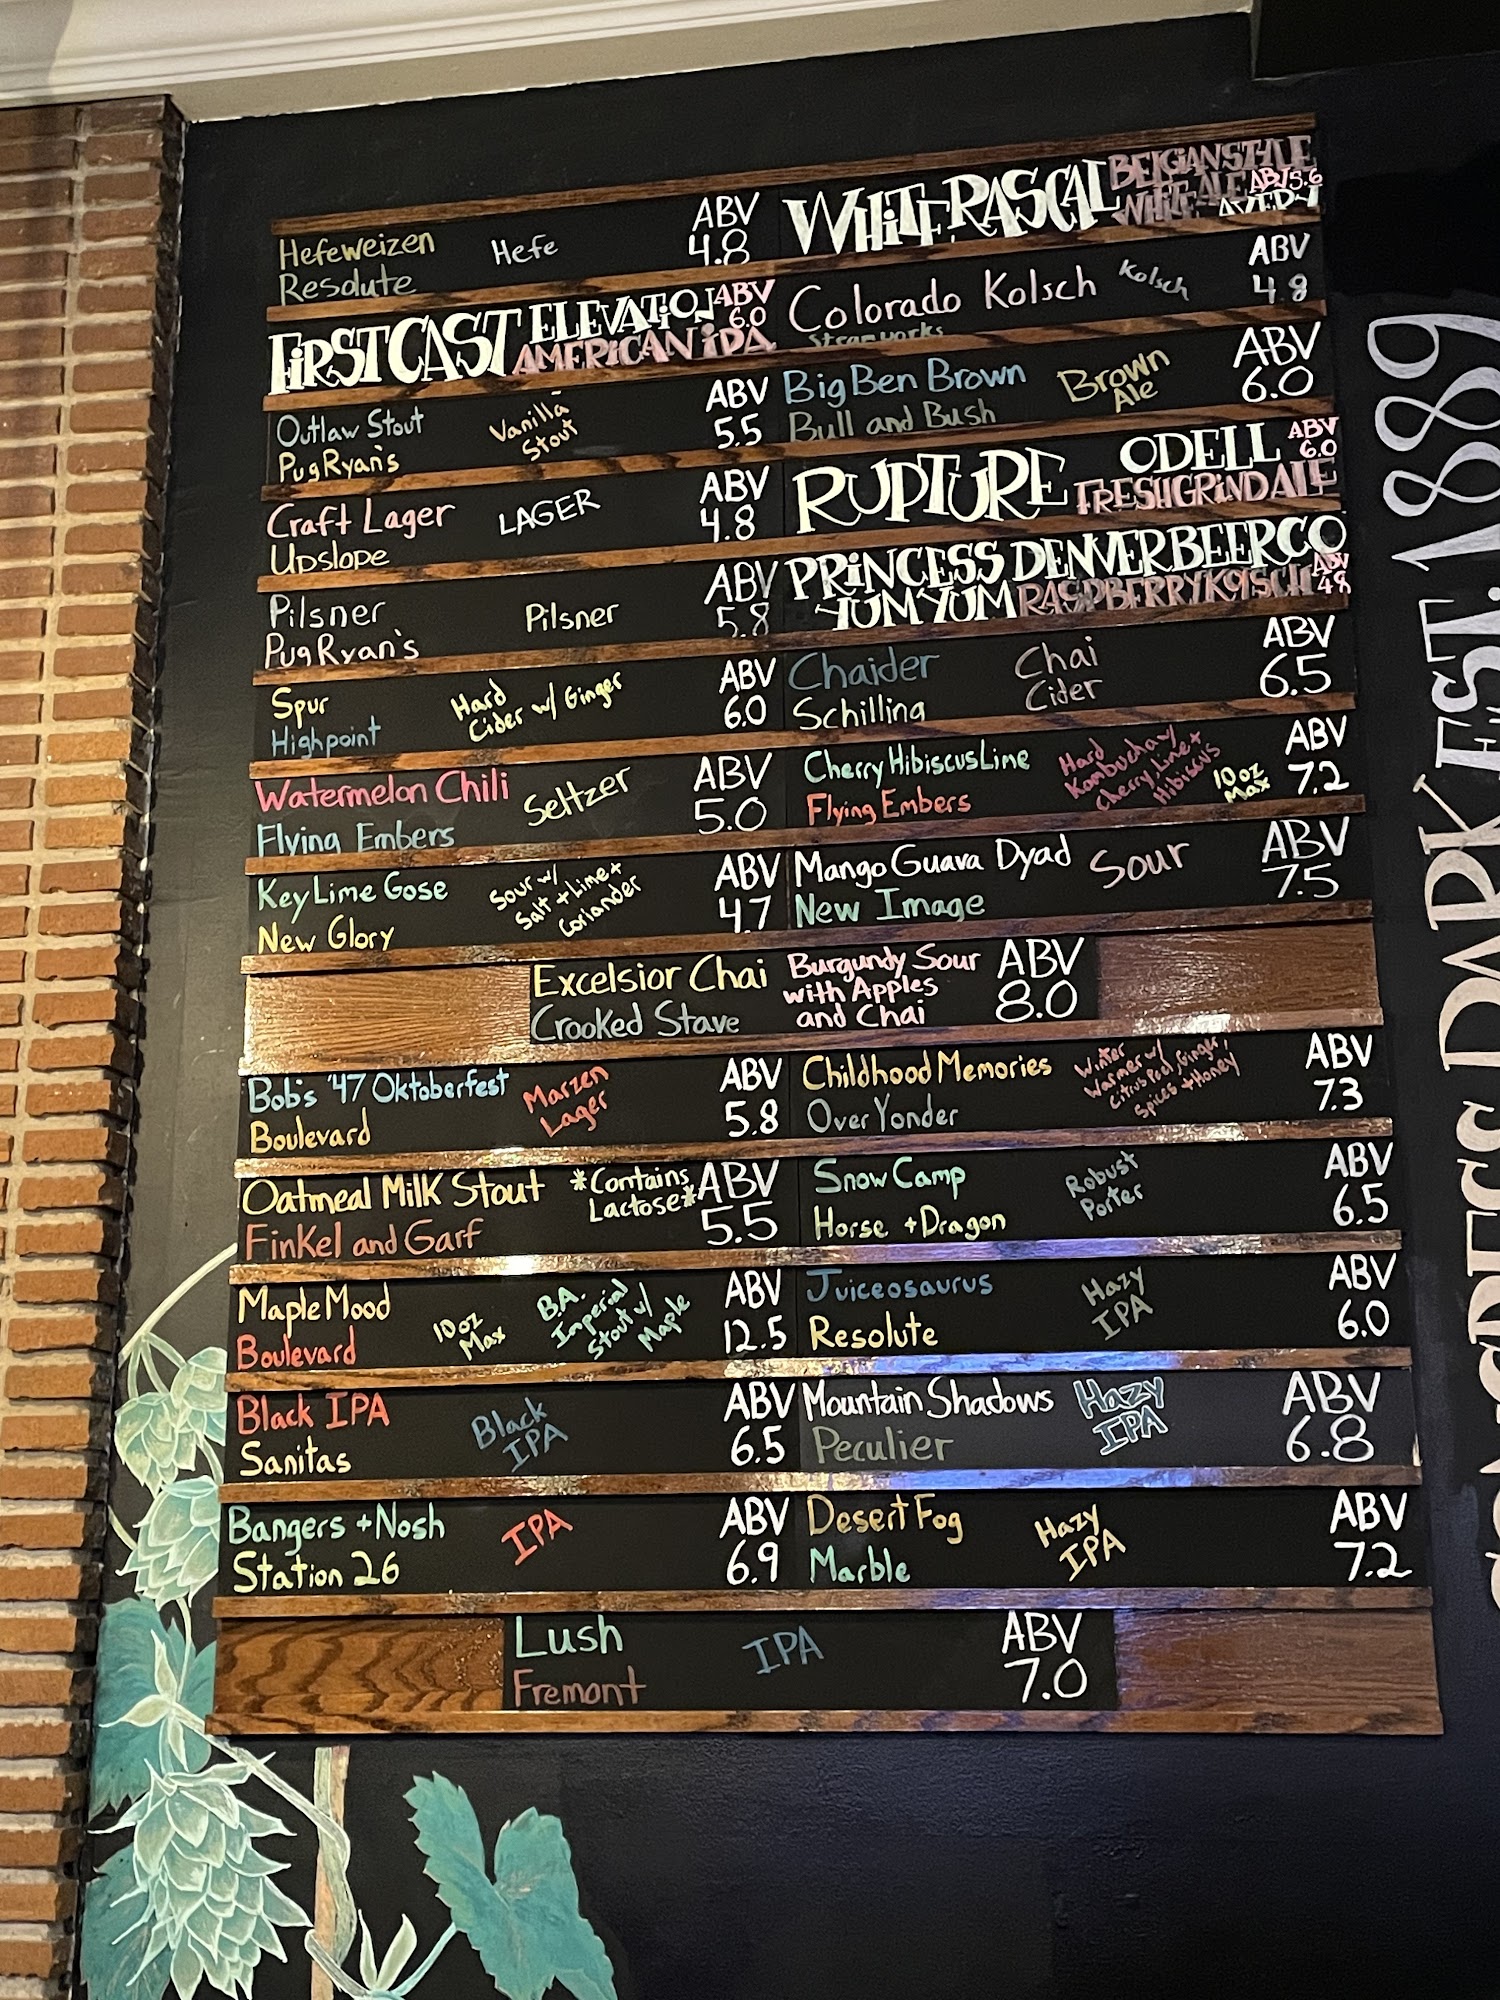 Hefeweizen Hefe ABV 4.8
Resolute
WHITE RASCAL BELGIAN STYLE WHITE ALE ABV 5.6 AVERY
FIRST CAST ELEVATION ABV 6.0
AMERICAN IPA
Colorado Kolsch Kolsch ABV 4.8
Steamworks
Outlaw Stout Vanilla Stout ABV 5.5
PugRyan's
Big Ben Brown Brown Ale ABV 6.0
Bull and Bush
Craft Lager LAGER ABV 4.8
Upslope
RUPTURE ODELL ABV 6.0
FRESH GRIND ALE
Pilsner Pilsner ABV 5.8
PugRyan's
PRINCESS YUM YUM DENVER BEER CO
RASPBERRY KOLSCH ABV 4.8
Spur Hard Cider w/ Ginger ABV 6.0
Highpoint
Chaider Chai Cider ABV 6.5
Schilling
Watermelon Chili Seltzer ABV 5.0
Flying Embers
Cherry Hibiscus Lime Hard Kombucha w/ Cherry, Lime + Hibiscus 10oz Max ABV 7.2
Flying Embers
Key Lime Gose Sour w/ Salt + Lime + Coriander ABV 4.7
New Glory
Mango Guava Dyad Sour ABV 7.5
New Image
Excelsior Chai Burgundy Sour with Apples and Chai ABV 8.0
Crooked Stave
Bob's '47 Oktoberfest Marzen Lager ABV 5.8
Boulevard
Childhood Memories Winter Warmer w/ Citrus Peel, Ginger, Spices + Honey ABV 7.3
Over Yonder
Oatmeal Milk Stout *Contains Lactose* ABV 5.5
Finkel and Garf
Snow Camp Robust Porter ABV 6.5
Horse + Dragon
Maple Mood 10oz Max B.A. Imperial Stout w/ Maple ABV 12.5
Boulevard
Juiceosaurus Hazy IPA ABV 6.0
Resolute
Black IPA Black IPA ABV 6.5
Sanitas
Mountain Shadows Hazy IPA ABV 6.8
Peculier
Bangers + Nosh IPA ABV 6.9
Station 26
Desert Fog Hazy IPA ABV 7.2
Marble
Lush IPA ABV 7.0
Fremont
PARK EST. 1889